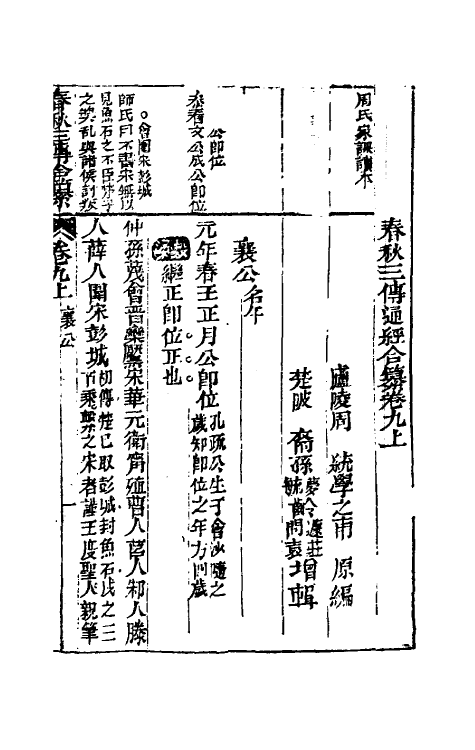 周氏家課讀本
春秋三傳通經合纂卷九上
廬陵周 統學之甫 原編
楚陂 裔孫 夢令蘧莊 毓齒問袁 增輯
襄公名午
公卽位
泰春文公成公卽位
元年春王正月公卽位孔疏公生于會沙隨之
歲知卽位之年方四歲
繼正卽位正也
○會圍宋彭城
師氏曰不書宋無以
見魚石之不臣
之叛乱與諸侯討叛
仲孫蔑會晉欒黶宋華元衛甯殖曹人莒人邾人滕
人薛人圍宋彭城切傳楚已取彭城封魚石戍之三
百乘繫之宋者謹王度聖人親筆
春秋三傳合纂
卷九上 襄公 一